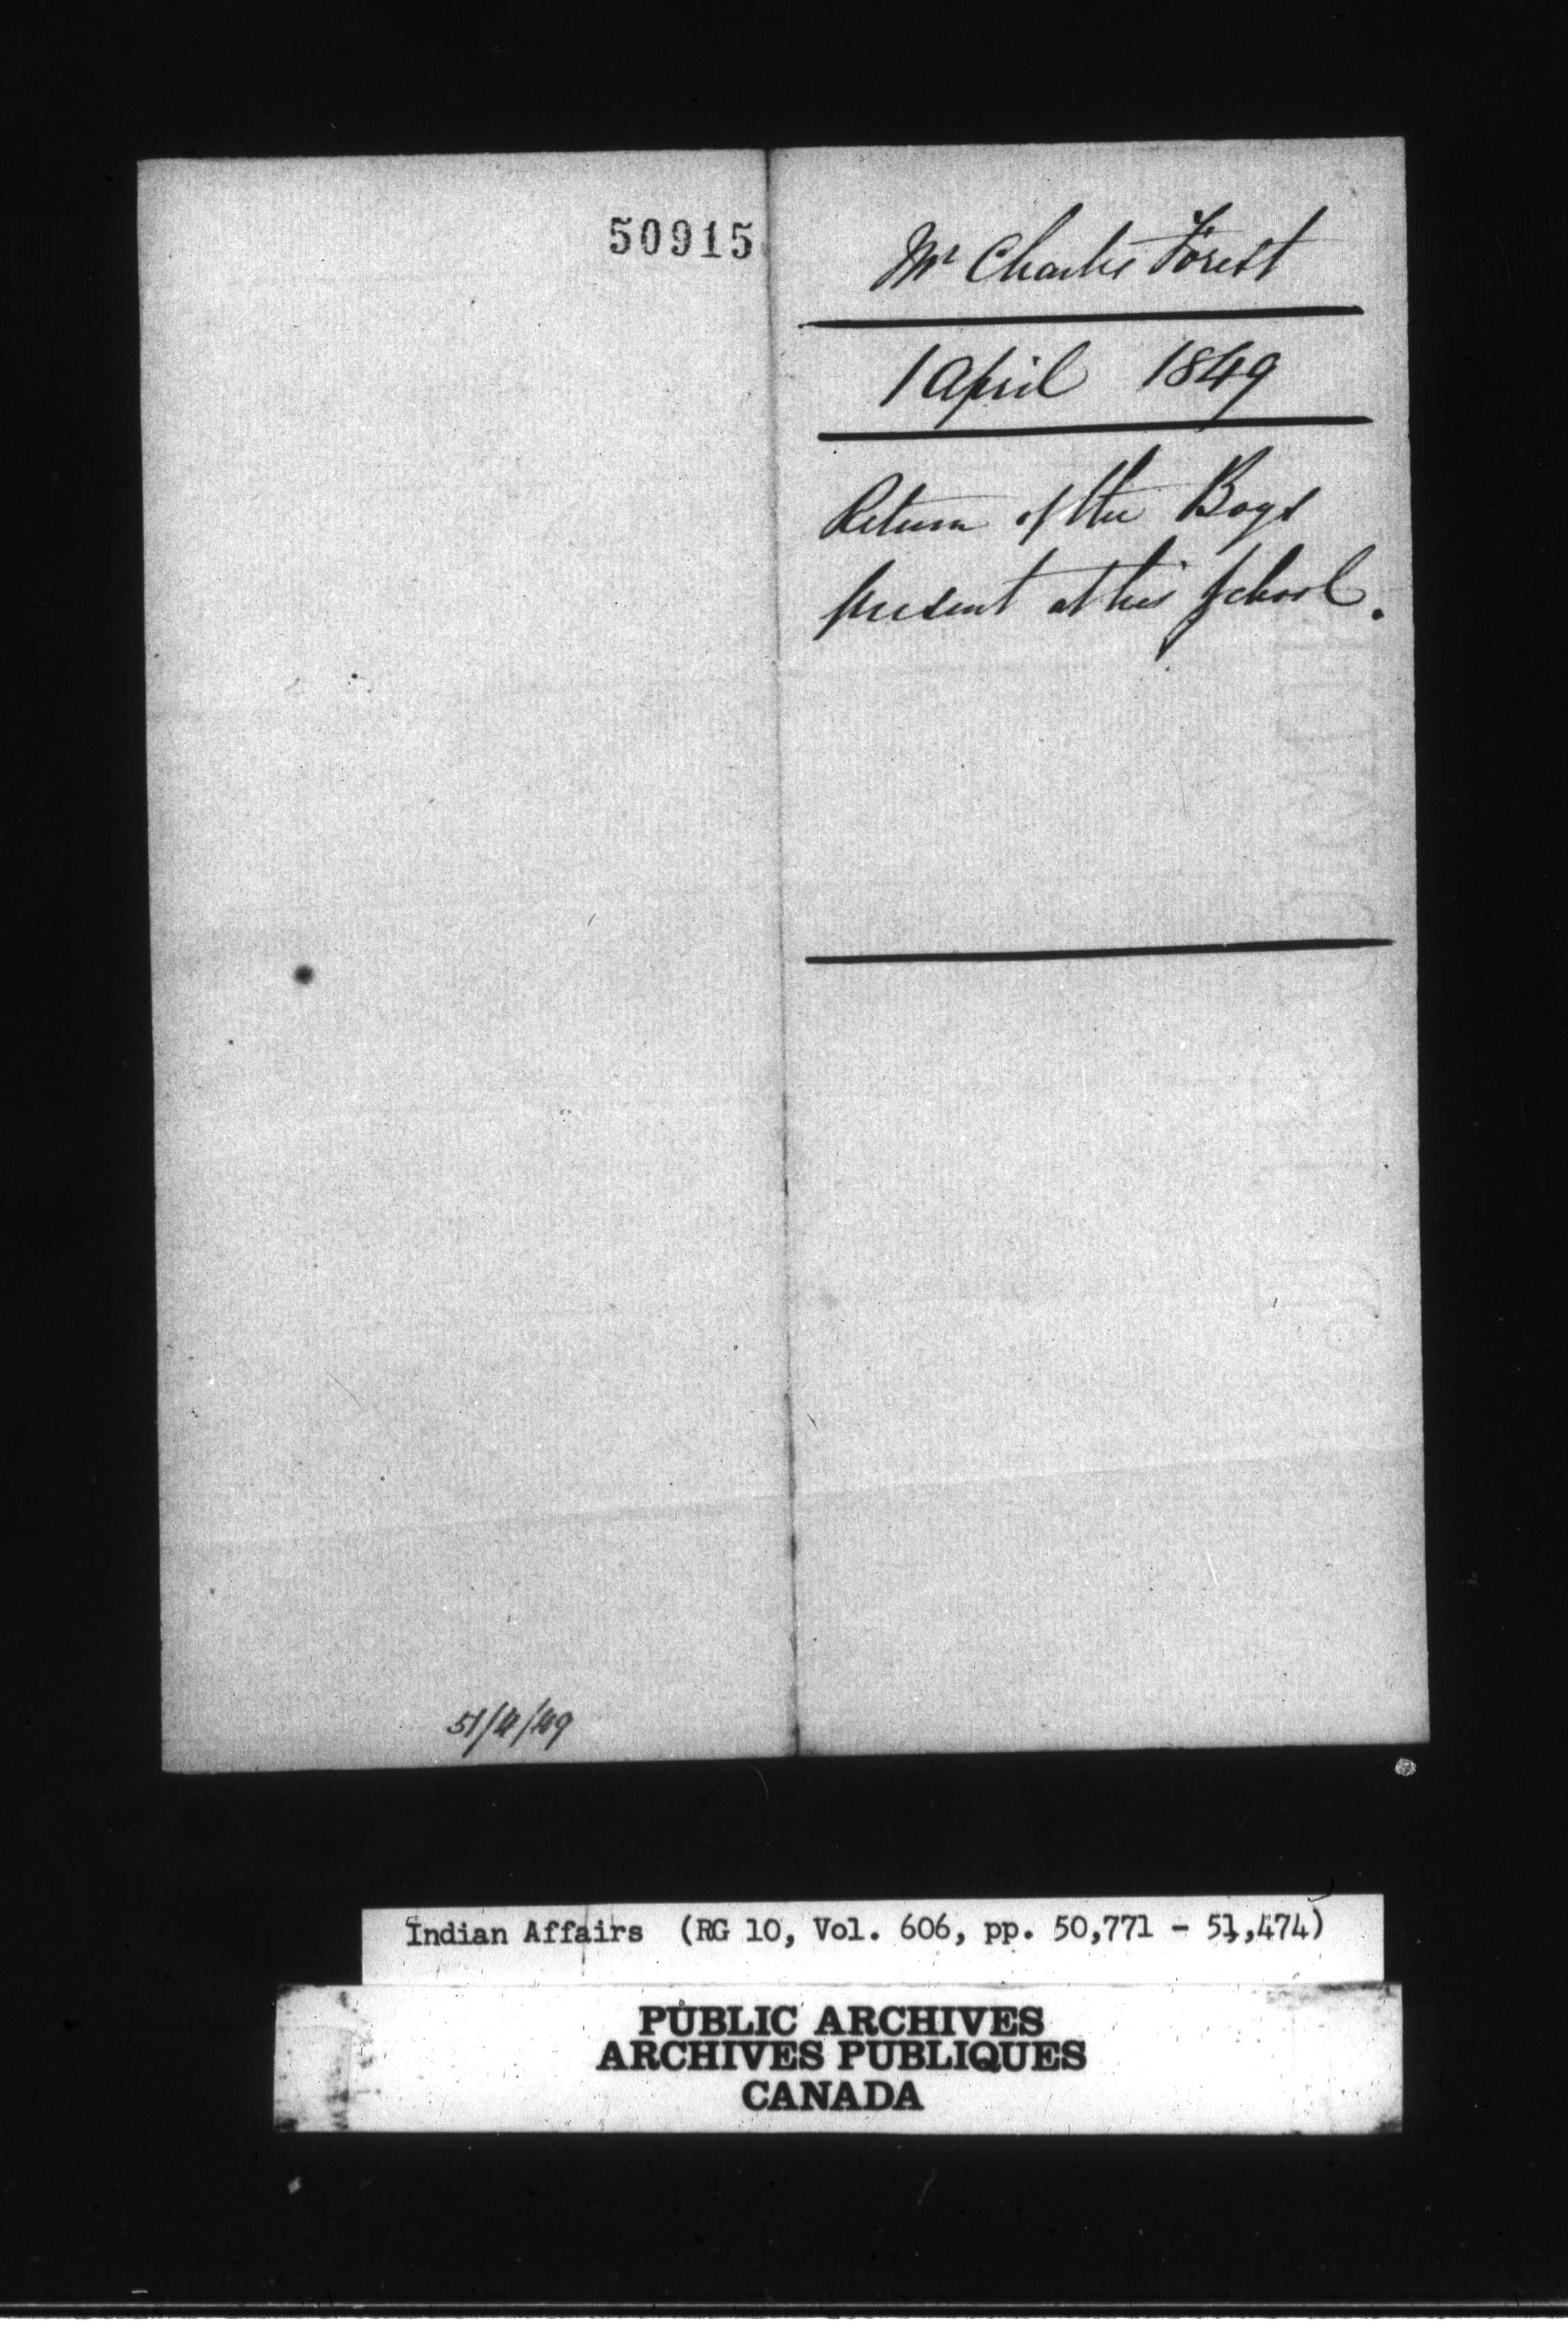 50915
Mr Charles Forest
1 April 1849
Return of the Boys
present at his School.
51/4/49
Indian Affairs (RG 10, Vol. 606, pp. 50,771 - 51,474)
PUBLIC ARCHIVES
ARCHIVES PUBLIQUES
CANADA